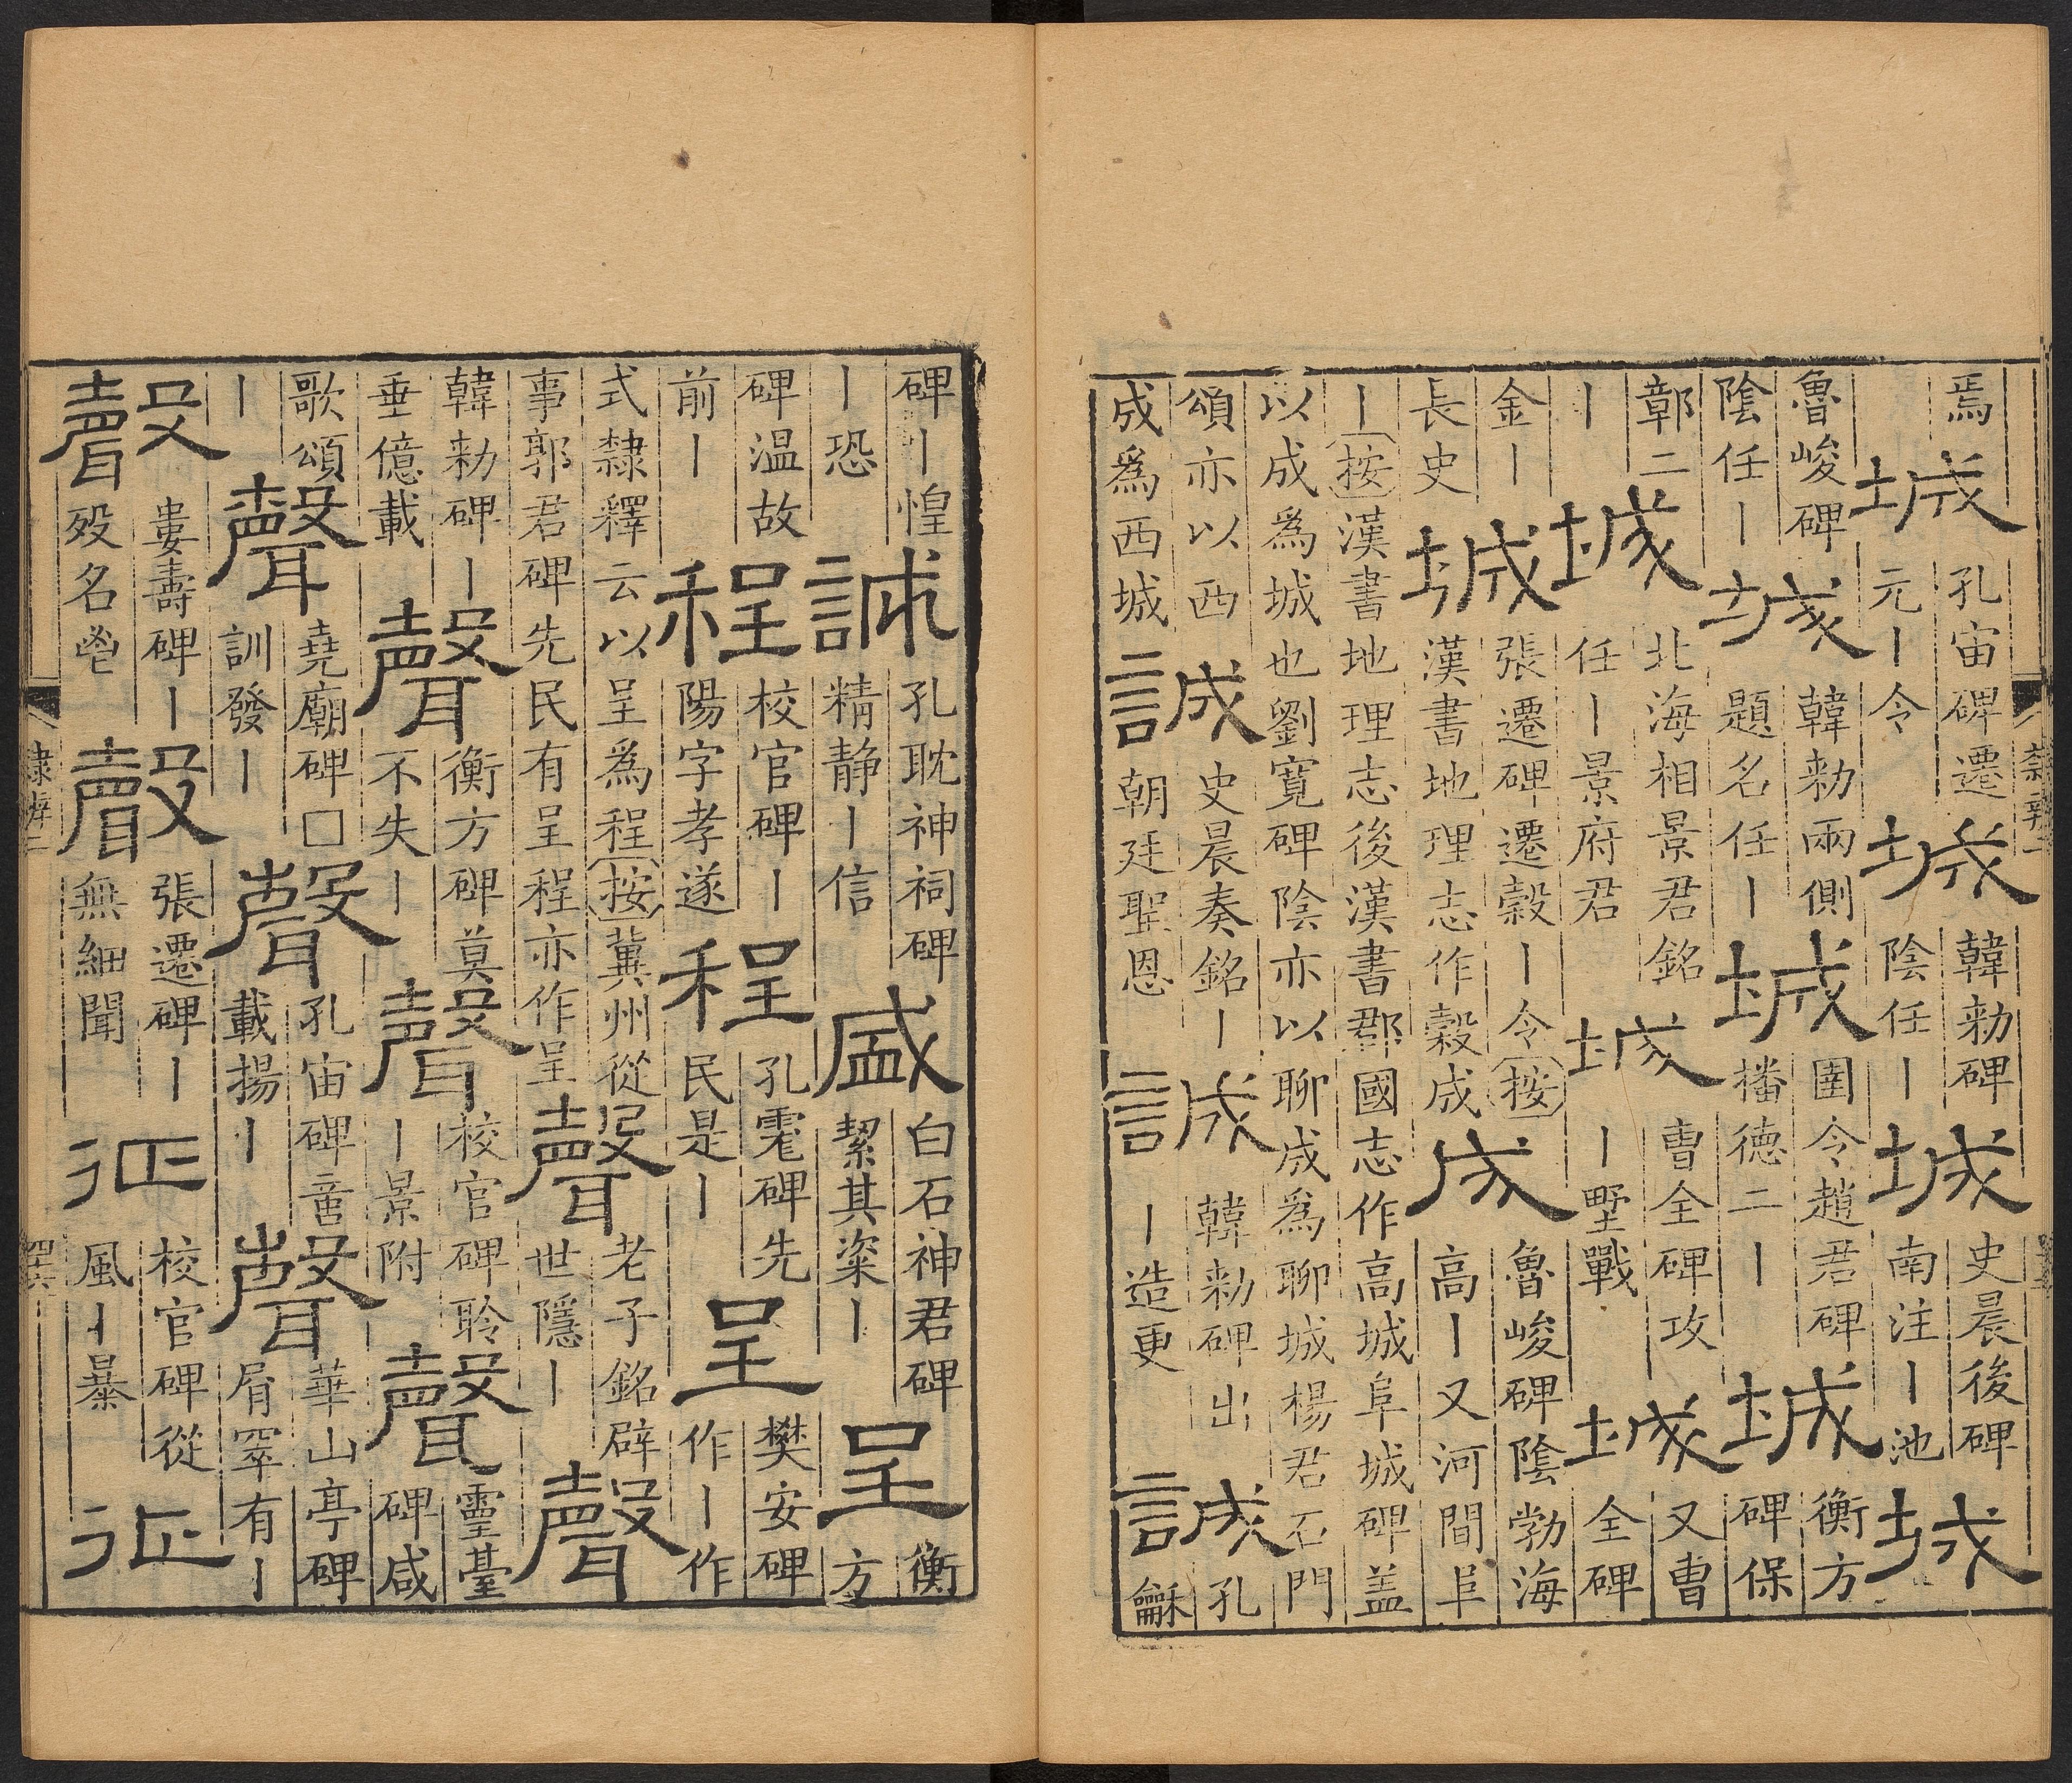 焉城孔宙碑遷元丨令城韓勑碑陰任丨城史晨後碑南注丨池城
魯峻碑陰任丨城韓勑兩側題名任丨城圉令趙君碑播德二丨城衡方碑保
鄣二丨城北海相景君銘任丨景府君城曹全碑攻丨墅戰城又曹全碑
金丨長史城張遷碑遷穀丨令按漢書地理志作穀成成魯峻碑陰勃海高丨又河間阜
丨按漢書地理志後漢書郡國志作高城阜城碑盖以成爲城也劉寬碑陰亦以聊成爲聊城楊君石門
頌亦以西成爲西城誠史晨奏銘丨朝廷聖恩誠韓勑碑出丨造更誠孔龢
碑丨惶丨恐誠孔耽神祠碑精静丨信盛白石神君碑絜其粢丨呈衡方
碑温故前丨程校官碑丨陽字孝遂程孔碑先民是丨呈樊安碑作丨作
式隸釋云以呈爲程按冀州從事郭君碑先民有呈程亦作呈聲老子銘辟世隱丨聲
韓勑碑丨垂億載聲衡方碑莫不失丨聲校官碑聆丨景附聲靈臺碑咸
歌頌丨聲堯廟碑□訓發丨聲孔宙碑音載揚丨聲華山亭碑屑窣有丨
聲婁壽碑丨歿名聲張遷碑丨無細聞征校官碑從風丨暴征
隸辨二 四十六